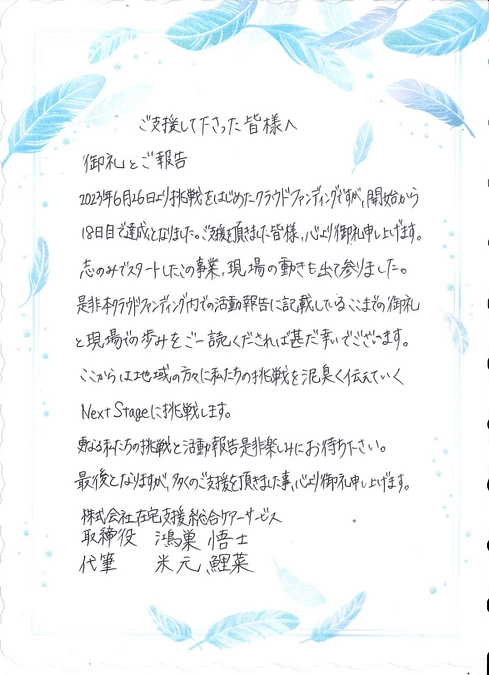 ご支援して下さった皆様へ
御礼とご報告
2023年6月26日より挑戦をはじめたクラウドファンディングですが、開始から
18日目で達成となりました。ご支援を頂きました皆様、心より御礼申し上げます。
志のみでスタートしたこの事業、現場の動きも出て参りました。
是非本クラウドファンディング内での活動報告に記載しているここまでの御礼
と現場での歩みをご一読くだされば甚だ幸いでございます。
ここからは地域の方々に私たちの挑戦を泥臭く伝えていく
Next Stageに挑戦します。
更なる私たちの挑戦と活動報告是非楽しみにお待ち下さい。
最後となりますが、多くのご支援を頂きました事、心より御礼申し上げます。
株式会社在宅支援総合ケアーサービス
取締役 鴻巣 悟士
代筆 米元 鯉菜